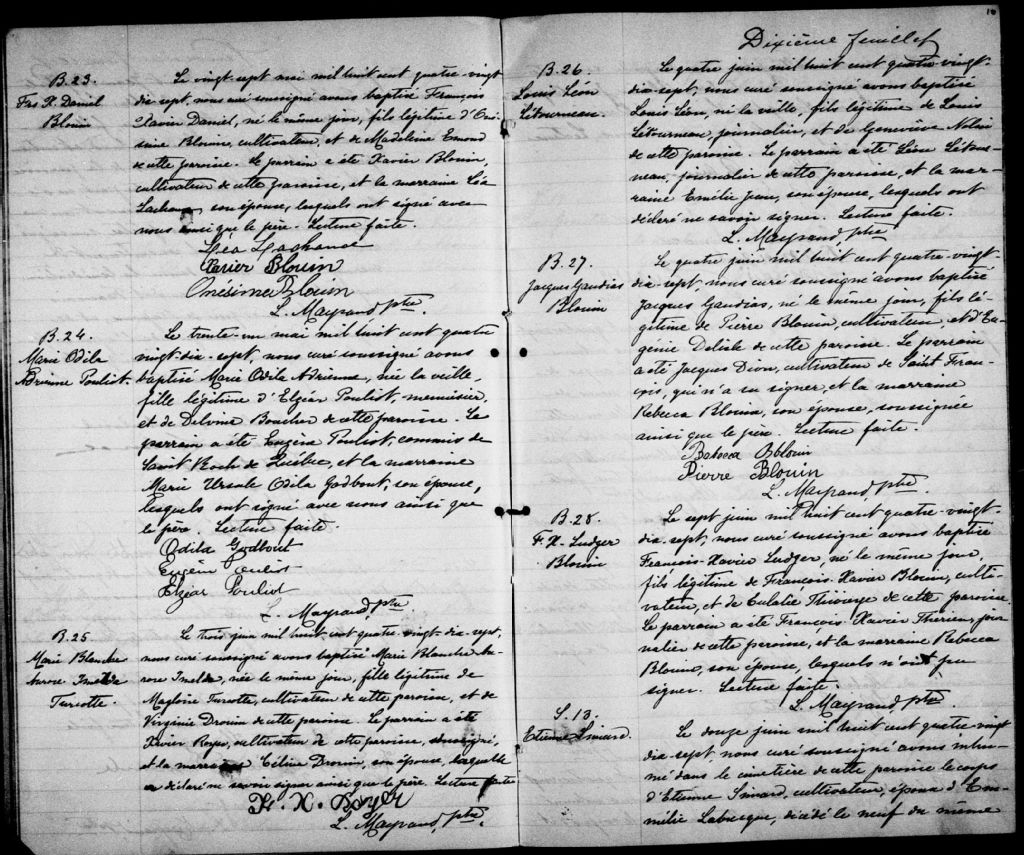 B. 23.
Frs X. Daniel
Blouin
Le vingt-sept mai mil huit cent quatre-vingt
dix-sept, nous curé soussigné avons baptisé François
Xavier Daniel, né le même jour, fils légitime d'Oné-
sime Blouin, cultivateur, et de Madeleine Emond
de cette paroisse. Le parrain a été Xavier Blouin,
cultivateur de cette paroisse, et la marraine Léa
Lachance, son épouse, lesquels ont signé avec
nous ainsi que le père. Lecture faite.
Léa Lachance
Xavier Blouin
Onésime Blouin
L. Mayrand, ptre.
B. 24.
Marie Odila
Adrienne Pouliot
Le trente-un mai mil huit cent quatre
vingt-dix-sept, nous curé soussigné avons
baptisé Marie Odila Adrienne, née la veille,
fille légitime d'Elzéar Pouliot, menuisier,
et de Delvina Boucher de cette paroisse. Le
parrain a été Eugène Pouliot, commis de
Saint Roch de Québec, et la marraine
Marie Ursule Odila Godbout, son épouse,
lesquels ont signé avec nous ainsi que
le père. Lecture faite.
Odila Godbout
Eugène Pouliot
Elzéar Pouliot
L. Mayrand, ptre
B. 25
Marie Blanche
Aurore Imelda
Turcotte.
Le trois juin mil huit-cent quatre-vingt-dix-sept,
nous curé soussigné avons baptisé Marie Blanche Au-
rore Imelda, née le même jour, fille légitime de
Magloire Turcotte, cultivateur de cette paroisse, et de
Virginie Drouin de cette paroisse. Le parrain a été
Xavier Royer, cultivateur de cette paroisse, soussigné,
et la marraine Céline Drouin, son épouse, laquelle
a déclaré ne savoir signer ainsi que le père. Lecture faite
F. X. Royer
L. Mayrand, ptre.
10
Dixième feuillet
B. 26.
Louis Léon
Létourneau.
Le quatre juin mil huit cent quatre-vingt-
dix-sept, nous curé soussigné avons baptisé
Louis Léon, né la veille, fils légitime de Louis
Létourneau, journalier, et de Geneviève Nolin
de cette paroisse. Le parrain a été Léon Létour-
neau, journalier de cette paroisse, et la mar-
raine Emélie Jean, son épouse, lesquels ont
déclaré ne savoir signer. Lecture faite.
L. Mayrand ptre
B. 27.
Jacques Gaudias
Blouin
Le quatre juin mil huit cent quatre-vingt-
dix-sept, nous curé soussigné avons baptisé
Jacques Gaudias, né le même jour, fils lé-
gitime de Pierre Blouin, cultivateur, et d'Eu-
génie Delisle de cette paroisse. Le parrain
a été Jacques Dion, cultivateur de Saint Fran-
çois, qui n'a su signer, et la marraine
Rebecca Blouin, son épouse, soussignée
ainsi que le père. Lecture faite.
Blouin
Pierre Blouin
L. Mayrand ptre.
B. 28.
F. X. Ludger
Blouin
Le sept juin mil huit cent quatre-vingt-
dix-sept, nous curé soussigné avons baptisé
François-Xavier Ludger, né le même jour,
fils légitime de François-Xavier Blouin, culti-
vateur, et de Eulalie Thivierge de cette paroisse
Le parrain a été François-Xavier Therien, jour
nalier de cette paroisse, et la marraine Rebecca
Blouin, son épouse, lesquels n'ont pu
signer. Lecture faite.
L. Mayrand, ptre.
S. 13.
Etienne Simard.
Le douze juin mil huit cent quatre-vingt
dix-sept, nous curé soussigné avons inhu-
mé dans le cimetière de cette paroisse le corps
d'Etienne Simard, cultivateur, époux d'Eu-
mélie Labrecque, décédé le neuf du même